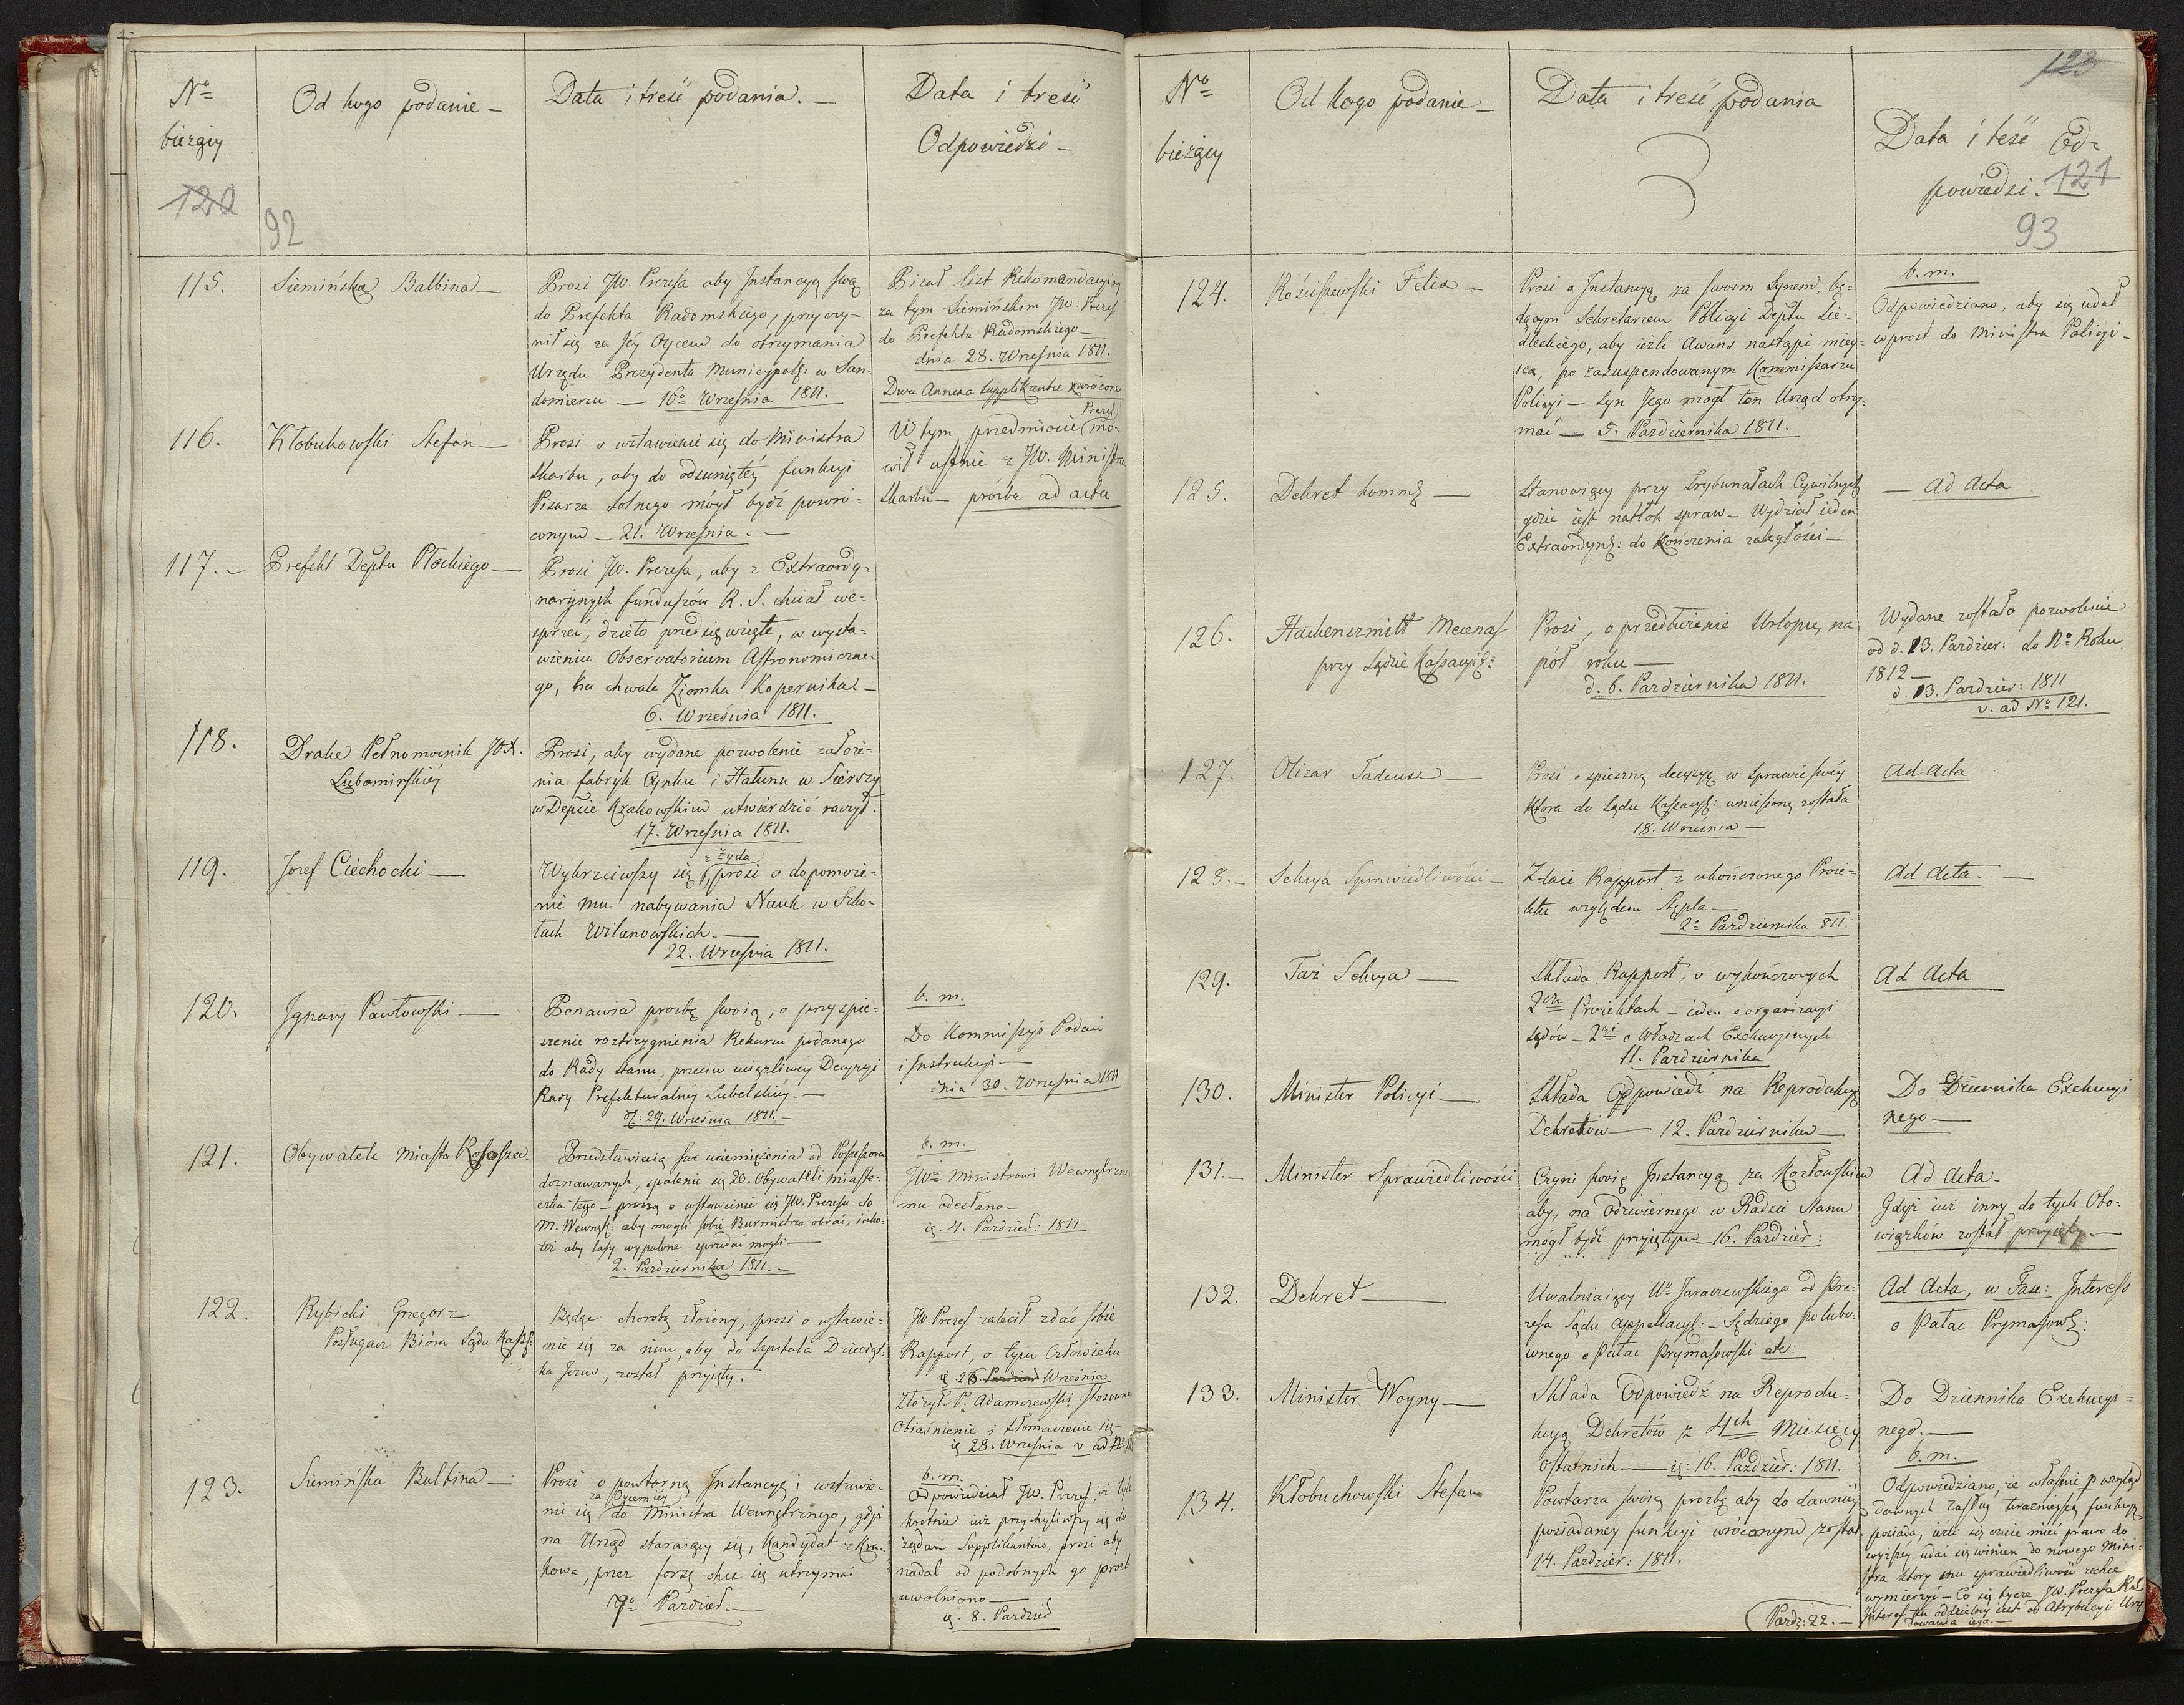 No
bieżący
120
92
Od kogo podanie —
Data i treść podania. —
Data i treść
Odpowiedzi —
115.
Siemińska Balbina —
Prosi JW. Prezesa aby Instancyą swą
do Prefekta Radomskiego, przyczy-
nił się za Jéy Oycem do otrzymania
Urzędu Prezydenta Municypalg: w San-
domierzu — 16o Września 1811.
Pisał list Rekomendacyiny
za tym Siemińskim JW. Prezes
do Prefekta Radomskiego —
dnia 28. Września 1811.
Dwa Annexa Supplikantce zwrócone
116.
Kłobukowski Stefan —
Prosi o wstawienie się do Ministra
Skarbu, aby do odsuniętéy funkcyi
Pisarza Solnego mógł bydź powró-
conym — 21. Września. —
W tym przedmiocie Prezes mó-
wił ustnie z JW. Ministrem
Skarbu — prośba ad acta
117. —
Prefekt Deptu Płockiego —
Prosi JW. Prezesa, aby z Extraordy-
naryjnych funduszów R. S. chciał we-
sprzeć, dzieło przedsięwzięte, w wysta-
wieniu Observatorium Astronomiczne-
go, ku chwale Ziomka Kopernika —
6. Września 1811.
118.
Drake Pełnomocnik JOX.
Lubomirskiéy
Prosi, aby wydane pozwolenie założe-
nia fabryk Cynku i Hałunu w Sierszy
w Depcie Krakowskim utwierdzić raczył.
17. Września 1811.
119.
Jozef Ciechocki —
Wykrzciwszy się z Żyda, prosi o dopomoże-
nie mu nabywania Nauk w Szko-
łach Wilanowskich. —
22. Września 1811.
120.
Ignacy Pawłowski —
Ponawia prozbę swoią, o przyspie-
szenie roztrzygnienia Rekursu podanego
do Rady Stanu, przeciw uciążliwey Decyzyi
Rady Prefekturalnéy Lubelskiéy. —
29. Września 1811. —
b. m.
Do Kommissyi Podań
i Instrukcyi —
dnia 30. Września 1811
121.
Obywatele Miasta Kossosza
Przedstawiaią swe uciemiężenia od Possessora
doznawanych, spalenie się 20. Obywateli miaste-
czka tego — proszą o wstawienie się JW. Prezesa do
M. Wewng: aby mogli sobie Burmistrza obrać, iako-
też aby lasy wypalone sprzedać mogli —
2. Października 1811. —
b. m.
JWu Ministrowi Wewnętrzne-
mu odesłano —
4. Paździer: 1811
122.
Rybicki Grzegorz
Posługacz Bióra Sądu Kassg:
Będąc chorobą złożony, prosi o wstawie-
nie się za nim, aby do Szpitala Dzieciąt-
ka Jezus, został przyięty.
JW. Prezes zalecił zdać sobie
Rapport, o tym Człowieku
26 Września
Złożył P. Adamczewski stosowne
Obiaśnienie i tłomaczenie się —
28. Września v ad No
123.
Siemińska Balbina —
Prosi o powtorną Instancyę i wstawie-
nie się za Oycem iey do Ministra Wewnętrznego, gdyż
na Urząd staraiący się, Kandydat z Kra-
kowa, przez forsę chce się utrzymać
7o Paździer: —
b. m.
Odpowiedział JW. Prezes, iż tyle
krotnie iuż przychyliwszy się do
żądań Supplikantów, prosi aby
nadal od podobnych go prozb
uwolniono —
8. Paździer
123
No
bieżący
Od kogo podanie —
Data i treść podania
Data i teść Od-
powiedzi. 121
93
124.
Kościszewski Felix —
Prosi o Instancyą za swoim Synem, bę-
dącym Sekretarzem Policyi Deptu Sie-
dleckiego, aby ieżli Awans nastąpi miey-
sca, po zazuspendowanym Kommissarzu
Policyi — Syn Jego mogł ten Urząd otrzy-
mać — 5. Października 1811.
b. m.
Odpowiedziano, aby się udał
wprost do Ministra Policyi —
125.
Dekret kommg —
Stanowiący przy Trybunałach Cywilnych
gdzie iest natłok spraw — Wydział ieden
Extraordyng: do kończenia zaległości —
— Ad Acta
126.
Hackenszmitt Mecenas
przy Sądzie Kassacyig:
Prosi, o przedłużenie Urlopu, na
pół roku —
d. 6. Października 1811.
Wydane zostało pozwolenie
od d. 13. Paździer: do No Roku
1812 —
d. 13. Paździer: 1811
v. ad No 121.
127.
Olizar Tadeusz —
Prosi o spieszną decyzyę w Sprawie swéy
ktora do Sądu Kassacyg: wniesioną została
18. Września —
Ad Acta
128. —
Sekcya Sprawiedliwości —
Zdaie Rapport z ukończonego Proie-
ktu względem Stępla —
2o Października 811.
Ad Acta. —
129.
Taż Sekcya —
Składa Rapport, o wykończonych
2ch Proiektach — ieden o organizacyi
Sądów — 2gi o Władzach Exekucyinych
11. Października
Ad Acta
130.
Minister Policyi —
Składa Odpowiedź na Reprodukcyą
Dekretów — 12. Października —
Do Dziennika Exekucyi
nego —
131. —
Minister Sprawiedliwości
Czyni swoię Instancyą za Kozłowskim
aby, na Odźwiernego w Radzie Stanu
mógł bydź przyiętym — 16. Paździer:
Ad Acta —
Gdyż iuż inny do tych Obo-
wiązków został przyięty —
132.
Dekret —
Uwalniaiący Wo Jaraczewskiego od Pre-
zesa Sądu Appellacyg: — Sędziego Polubo-
wnego o Pałac Prymasowski etc:
Ad Acta, w Fasc: Interess
o Pałac Prymasowg:
133.
Minister Woyny —
Składa Odpowiedź na Reprodu-
kcyą Dekretów z 4ch Miesięcy
Ostatnich. — 16. Paździer: 1811.
Do Dziennika Exekucyi-
nego. —
134.
Kłobuchowski Stefan
Powtarza swoią prozbę aby do dawniéy
posiadanéy funkcyi wróconym został
14. Paździer: 1811.
Paźdz: 22. —
b. m.
Odpowiedziano, że właśnie p wzgląd
dawnych zasług teraźnieyszą funkcyą
posiada, ieżli się czuie mieć prawo do
wyższéy, udać się winien do nowego Mini-
stra ktory mu sprawiedliwość zechce
wymierzyć — Co się tycze JW. Prezesa Rad.
Interes ten oddzielny iest od Atrybucyi Urzę
dowania iego. —